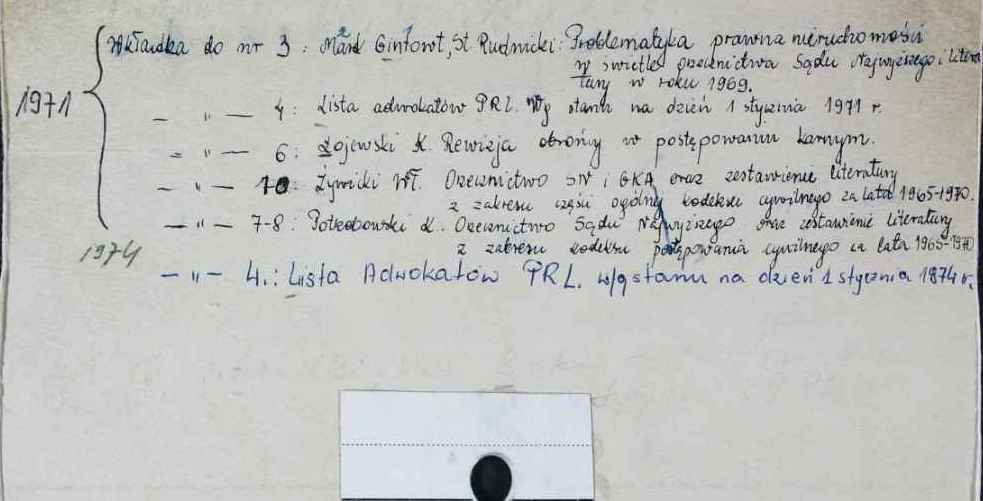 1971 Wkładka do nr 3 : Marek Gintowt, St. Rudnicki: Problematyka prawna nieruchomości
w świetle orzecznictwa Sądu Najwyższego i litera
tury w roku 1969.
— " — 4: Lista adwokatów PRL. Wg stanu na dzień 1 stycznia 1971 r.
— " — 6: Łojewski K. Rewizja obrońcy w postępowaniu karnym.
— " — 10: Żywicki Wł. Orzecznictwo SN i GKA oraz zestawienie literatury
z zakresu części ogólnej kodeksu cywilnego za lata 1965-1970.
— " — 7-8: Potrzobowski K. Orzecznictwo Sądu Najwyższego oraz zestawienie literatury
z zakresu kodeksu postępowania cywilnego za lata 1965-1970
1974
— " — 4.: Lista Adwokatów PRL. w/g stanu na dzień 1 stycznia 1874 r.